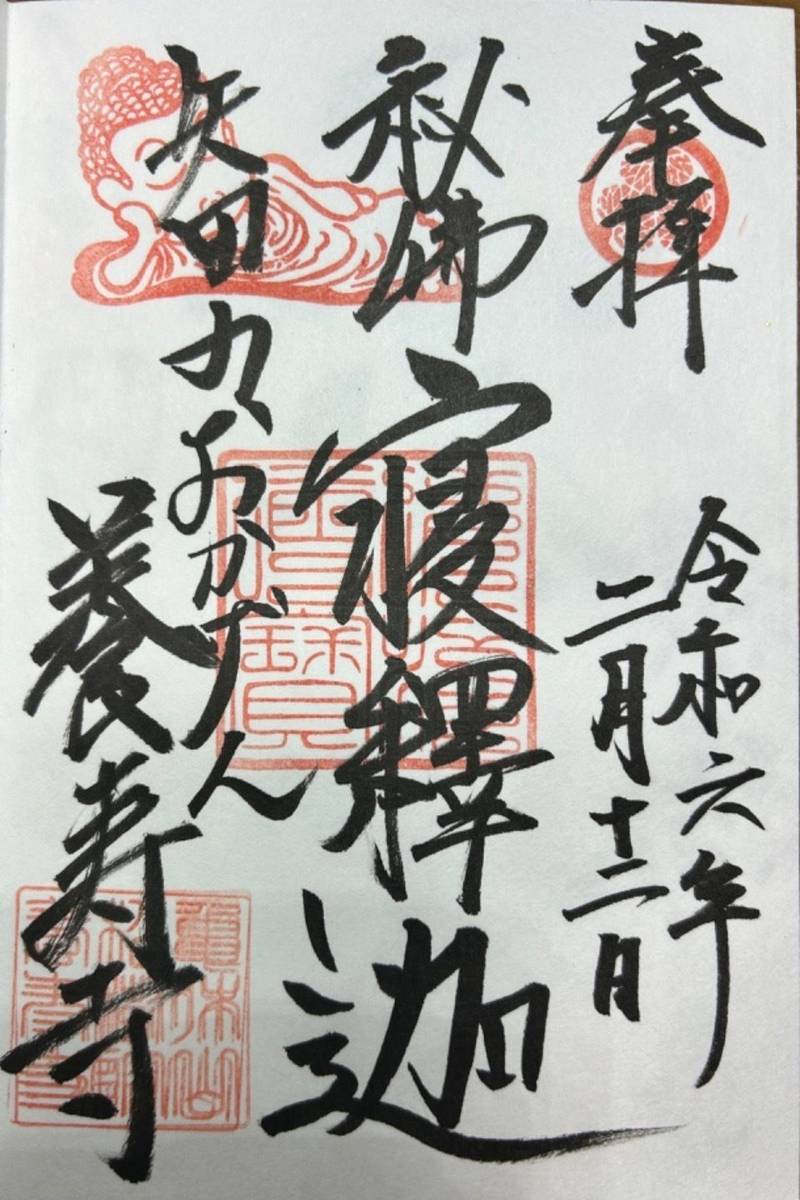 奉拝
令和六年
二月十二日
秘佛
寝釋迦
矢田のおかげん
養寿寺